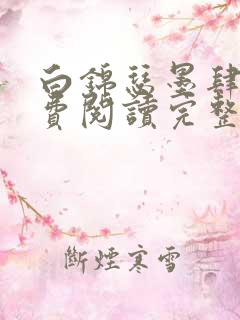 白錦瑟墨肆
費閱讀完整
斷煙寒雪